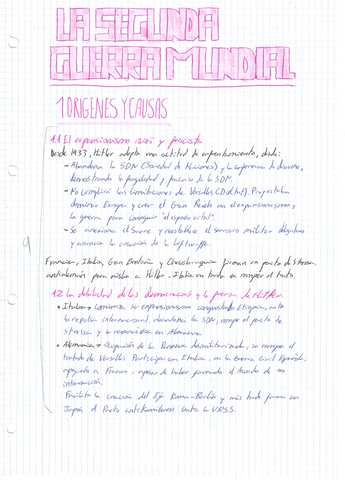 LA SEGUNDA
GUERRA MUNDIAL
1 ORIGENES Y CAUSAS
1.1 El expansionismo nazi y fascista
Desde 1933, Hitler adopta una actitud de enfrentamiento, desde:
- Abandona la SDN (Sociedad de Naciones) y la conferencia de desarme,
demostrando la fragilidad y fracaso de la SDN
- No cumplirá las limitaciones de Versalles (Diktat). Proyectaba
dominar Europa y crear el Gran Reich con el expansionismo y
la guerra para conseguir "el espacio vital".
- Se anexiona el Sarre y restablece el servicio militar obligatorio
y anuncia la creación de la Luftwaffe.
Francia, Italia, Gran Bretaña y firman un pacto de Stressa
antialemán para aislar a Hitler. Italia no tarda en romper el trato.
1.2 La debilidad de las democracias y la fuerza de Hitler.
• Italia → Comienza su expansionismo conquistando Etiopía, ante
la repulsa internacional abandona la SDN, rompe el pacto de
Stressa y se reconcilia con Alemania
• Alemania → Ocupación de la Renania desmilitarizada, se rompe el
tratado de Versalles. Participa con Italia, en la Guerra Civil Española,
apoyando a Franco, a pesar de haber firmado el Acuerdo de no
intervención.
Facilita la creación del Eje Roma-Berlín y más tarde firma con
Japón el Pacto antikomintern contra la URSS.
9